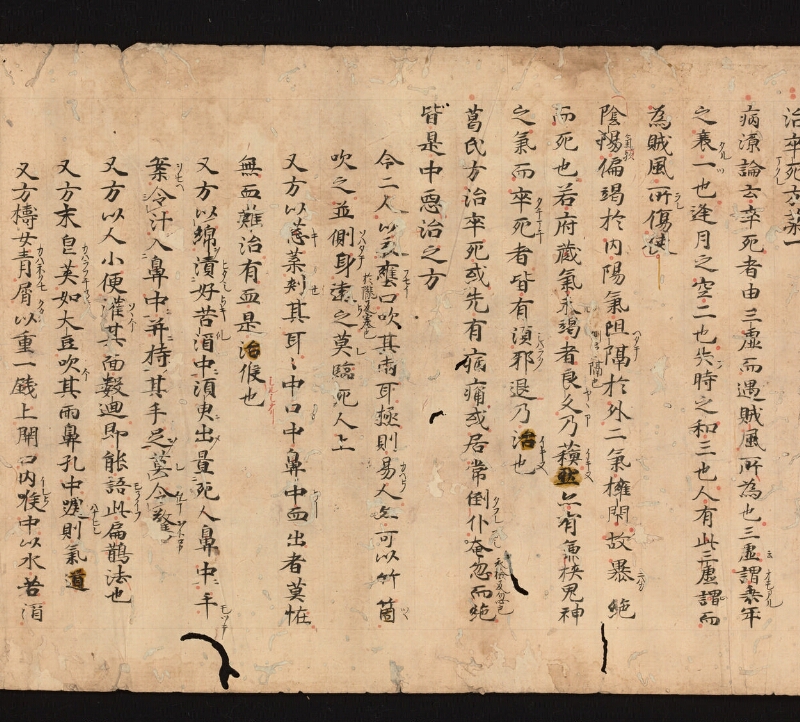 治卒死方第一
病源論云卒死者由三虛而遇賊風所為也三虛謂乘年
之衰一也逢月之空二也失時之和三也人有此三虛謂而
為賊風所傷
陰陽偏竭於內陽氣阻隔於外二氣擁閇故暴絕
而死也若府藏氣未竭者良久乃蘓然亦有兼挾鬼神
之氣而卒死者皆有頃邪退乃治也
葛氏方治卒死或先有病痛或居常倒仆奄忽而絕
皆是中惡治之方
令二人以衣壅口吹其兩耳極則易人亦可以竹筒
吹之並側身遠之莫臨死人上
又方以葱葉刾其耳〻中口中鼻中血出者莫恠
無血難治有血是治候也
又方以綿漬好苦酒中須臾出量死人鼻中手
案令汁入鼻中并持其手足莫令驚
又方以人小便灌其面數迴即能語此扁鵲法也
又方末皂莢如大豆吹其兩鼻孔中嚏則氣通
又方擣女青屑以重一錢上開口內喉中以水苦酒